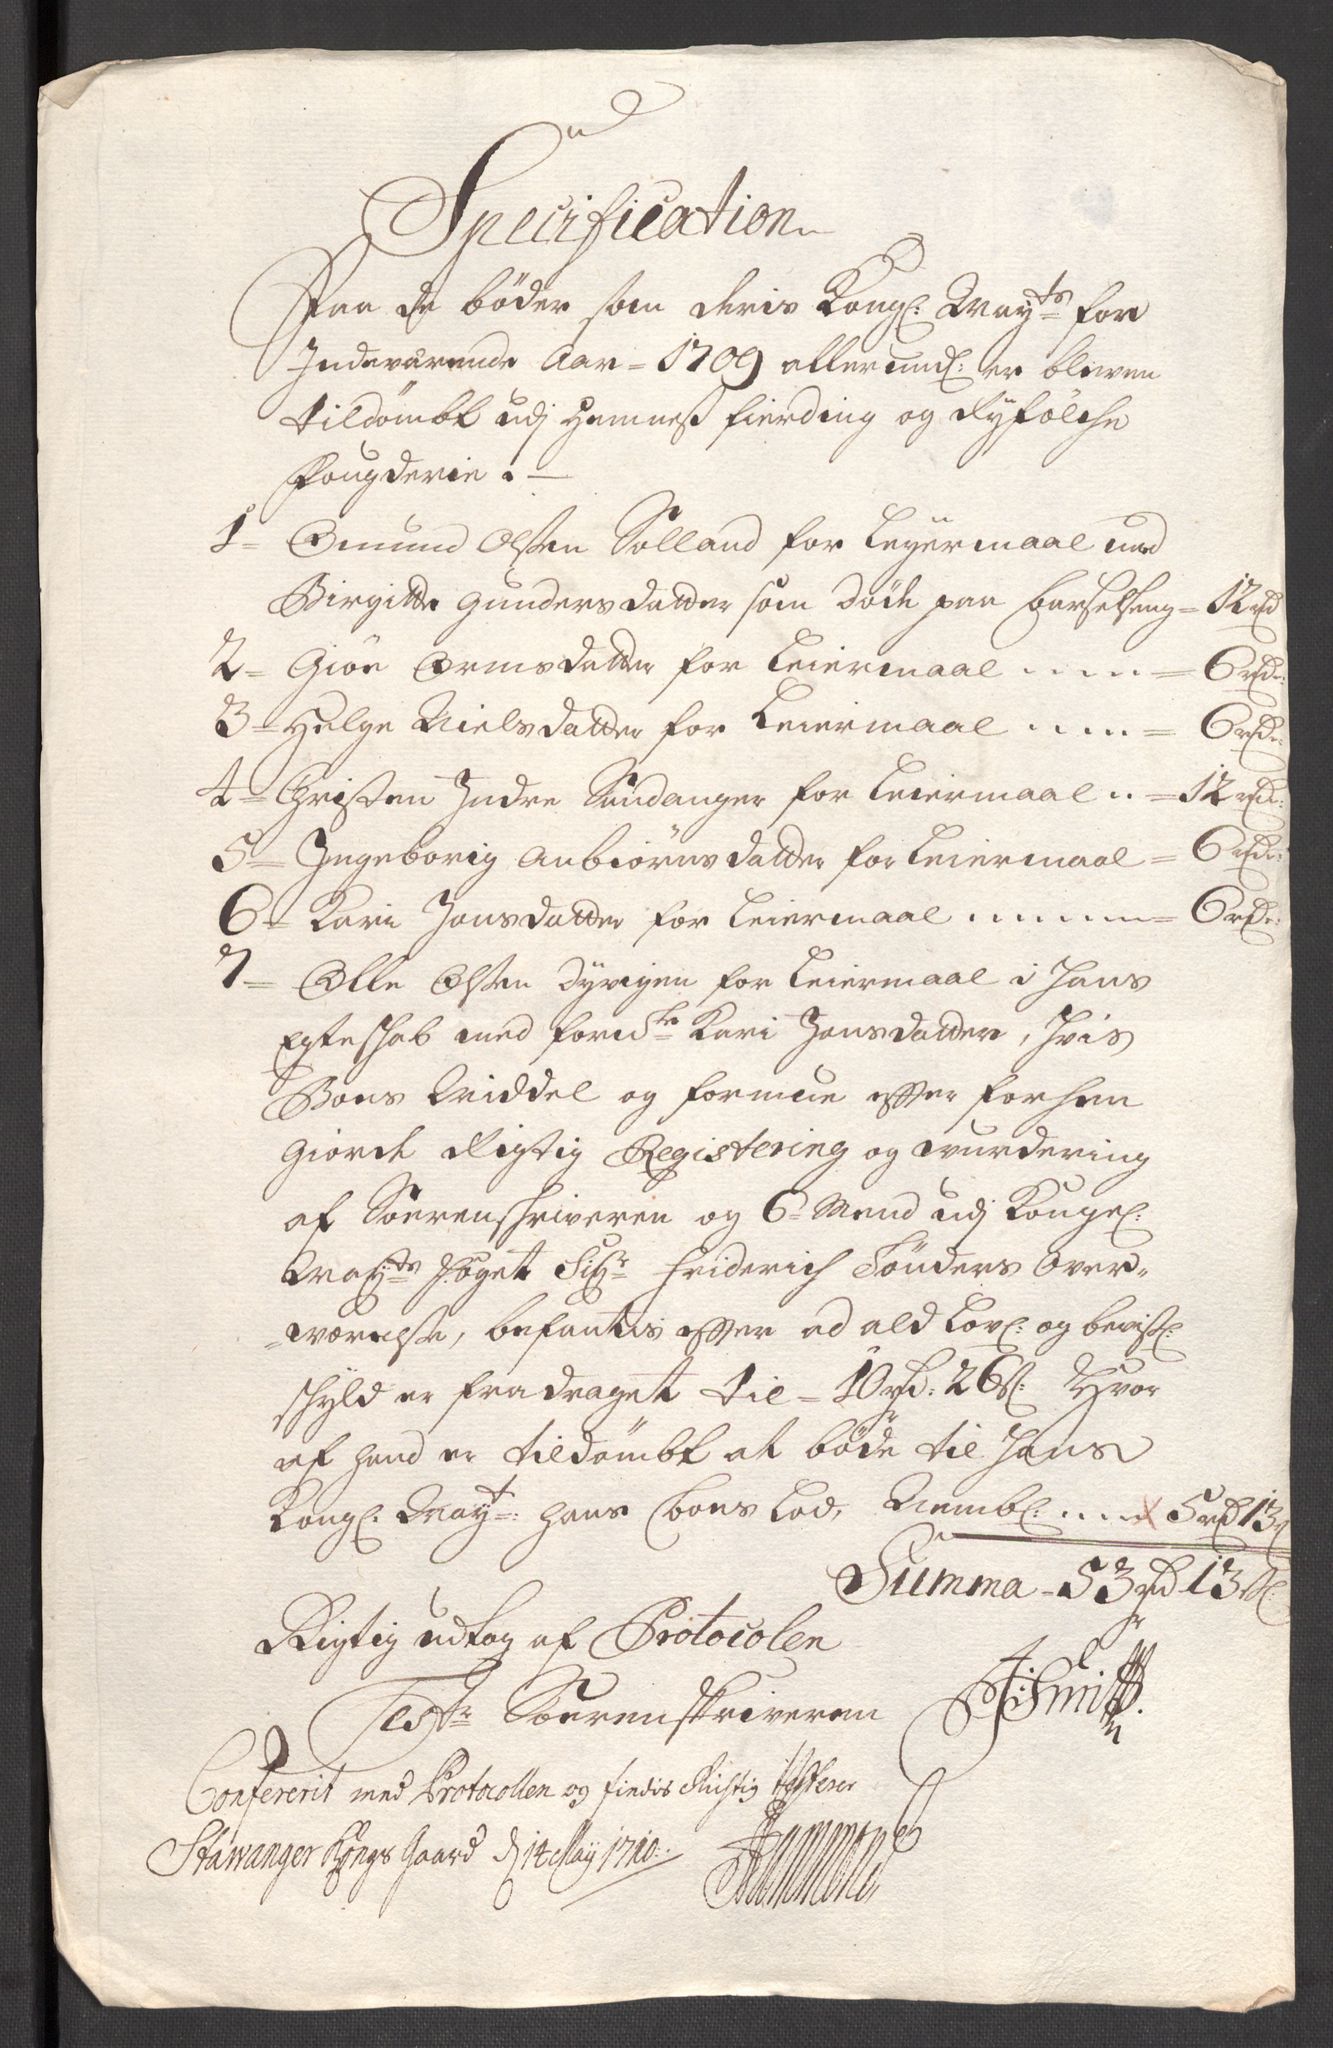 Specification
Paa de böder som deris Kongl: Mayts for
Indeværende Aar = 1709 allerund: er bleven
tildömbt udj Hemnes fierding og Ryfölche
Fougderie. —
1= Omund Olsen Solland for Leyermaal med
Birgitte Gundersdatter som döde paa barselseng = 12 rd
2= Giöe Ormsdatter for Leiermaal ..... = 6 rd:
3= Helge Nielsdatter for Leiermaal .... = 6 rd:
4= Christen Indre Sandanger for Leiermaal .. = 12 rd:
5= Ingeborig Anbiörnsdatter for Leiermaal = 6 rd:
6= Kari Jonsdatter for Leiermaal ....... = 6 rd:
7= Olle Olsen Dyrigen for Leiermaal i hans
Egteschab med formelte Kari Jonsdatter, hvis
Boens Middel og formue effter forhen
giorde Rigtig Registering og wurdering
af Sorenschriveren og 6 Mend udj Kongel:
Maÿts foget Sigr Friderich Tönders Over-
=werelse, befantis effter ad ald Lovl: og bevisl:
schyld er fradraget til = 10 rd: 26 s: Hvor
af hand er tildömbt at böde til Hans
Kongl: Mayt: hans boens Lod, Nembl: .... 5 rd 13 s
Summa - 53 rd 13 s:
Rigtig udtog af Protocolen
Test: Sorenskriveren Smith
Confererit med Protocollen og findis Rigtig testerer
Stawanger Kongs Gaard d 14 May 1710.